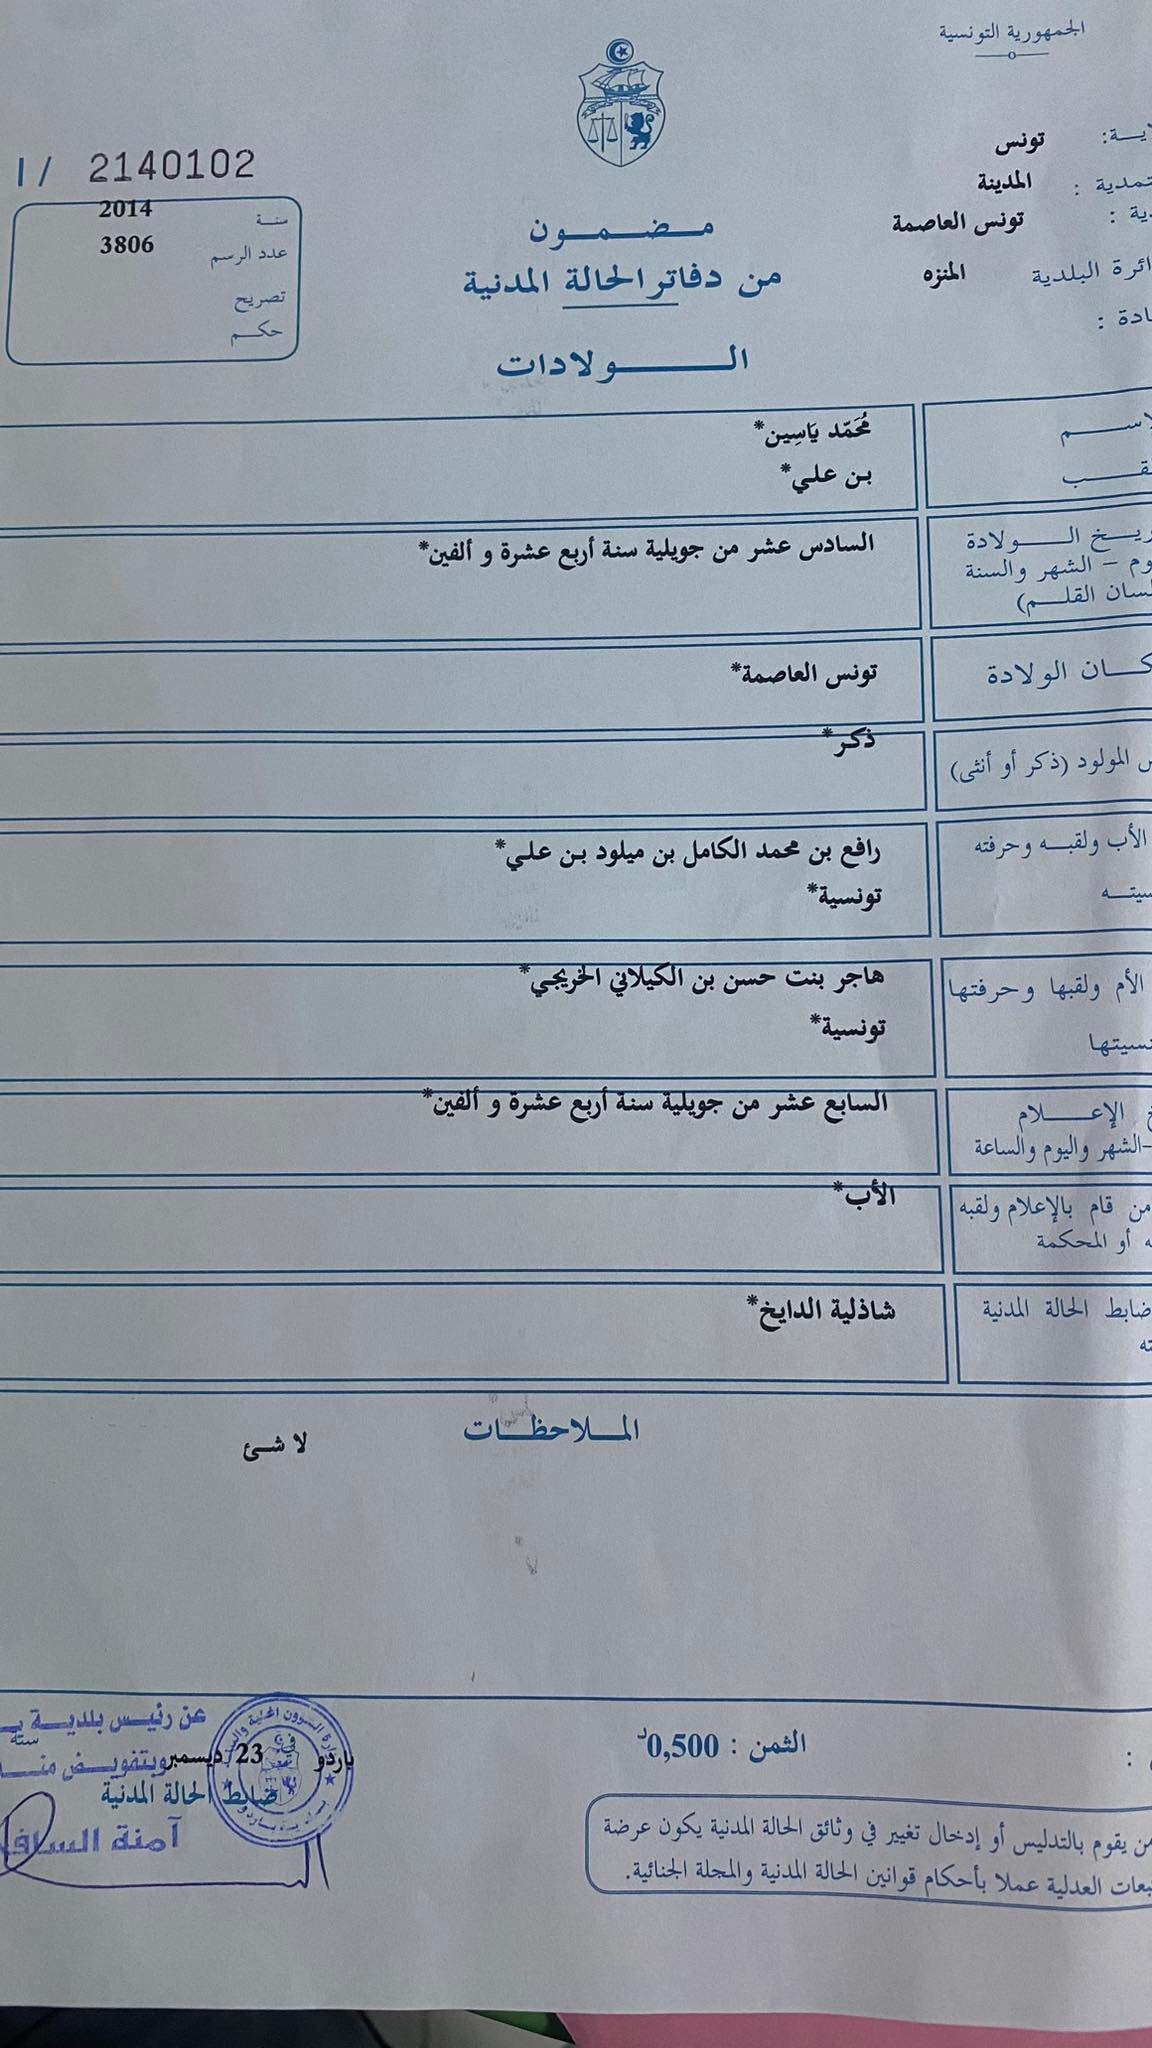 الجمهورية التونسية
تونس
المدينة
تونس العاصمة
ائرة البلدية المنزه
I / 2140102
سنة 2014
عدد الرسم 3806
تصريح
حكم
مضمون
من دفاتر الحالة المدنية
الولادات
مُحَمّد يَاسِين*
بن علي*
ريخ الولادة
وم - الشهر والسنة
لسان القلم)
السادس عشر من جويلية سنة أربع عشرة و ألفين*
كان الولادة
تونس العاصمة*
س المولود (ذكر أو أنثى)
ذكر*
الأب ولقبه وحرفته
سيته
رافع بن محمد الكامل بن ميلود بن علي*
تونسية*
الأم ولقبها وحرفتها
نسيتها
هاجر بنت حسن بن الكيلاني الخريجي*
تونسية*
خ الإعلام
-الشهر واليوم والساعة
السابع عشر من جويلية سنة أربع عشرة و ألفين*
من قام بالإعلام ولقبه
ه أو المحكمة
الأب*
ضابط الحالة المدنية
ته
شاذلية الدايخ*
الملاحظات
لا شئ
الثمن : 0,500د
عن رئيس بلدية
باردو 23 ديسمبر سنة
وبتفويض منه
ضابط الحالة المدنية
آمنة
من يقوم بالتدليس أو إدخال تغيير في وثائق الحالة المدنية يكون عرضة
تبعات العدلية عملا بأحكام قوانين الحالة المدنية والمجلة الجنائية.